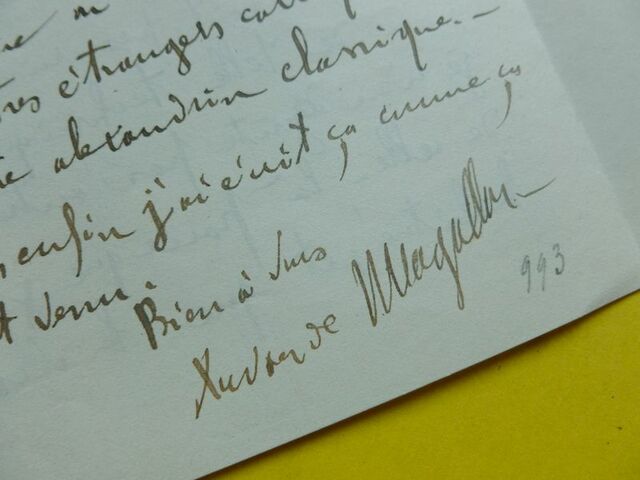 étrangers
alexandrin classique. —
enfin j'ai écrit ça comme ça
venu.
Bien à vous
Xavier de Magallon —
993